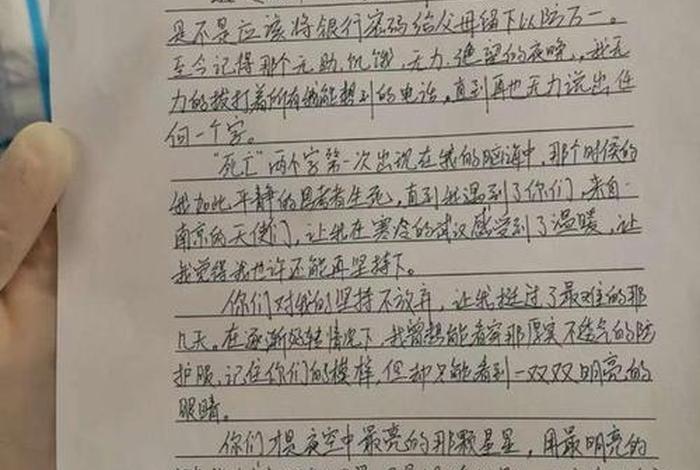 是不是应该将银行密码给父母留下以防万一。
至今记得那个无助、饥饿、无力、绝望的夜晚,我无
力的拨打着所有我能想到的电话,直到再也无力说出任
何一个字。
“死亡”两个字第一次出现在我的脑海中,那个时候的
我如此平静的思考着生死,直到我遇到了你们,来自
南京的天使们,让我在寒冷的武汉感受到了温暖,让
我觉得我也许还能再坚持下。
你们对我的坚持不放弃,让我挺过了最难的那
几天。在逐渐好转情况下,我曾想能看穿那厚实不透气的防
护服,记住你们的模样,但却只能看到一双双明亮的
眼睛。
你们才是夜空中最亮的那颗星星,用最明亮的